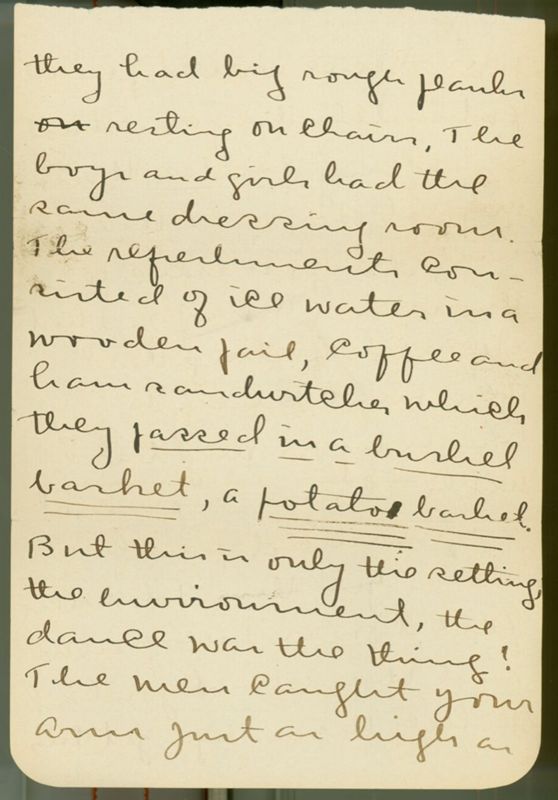 they had big rough planks
on resting on chairs, The
boys and girls had the
same dressing room.
The refreshments con-
sisted of ice water in a
wooden pail, coffee and
ham sandwitches which
they passed in a bushel
basket, a potato basket.
But this is only the setting,
the environment, the
dance was the thing!
The men caught your
arm just as high as